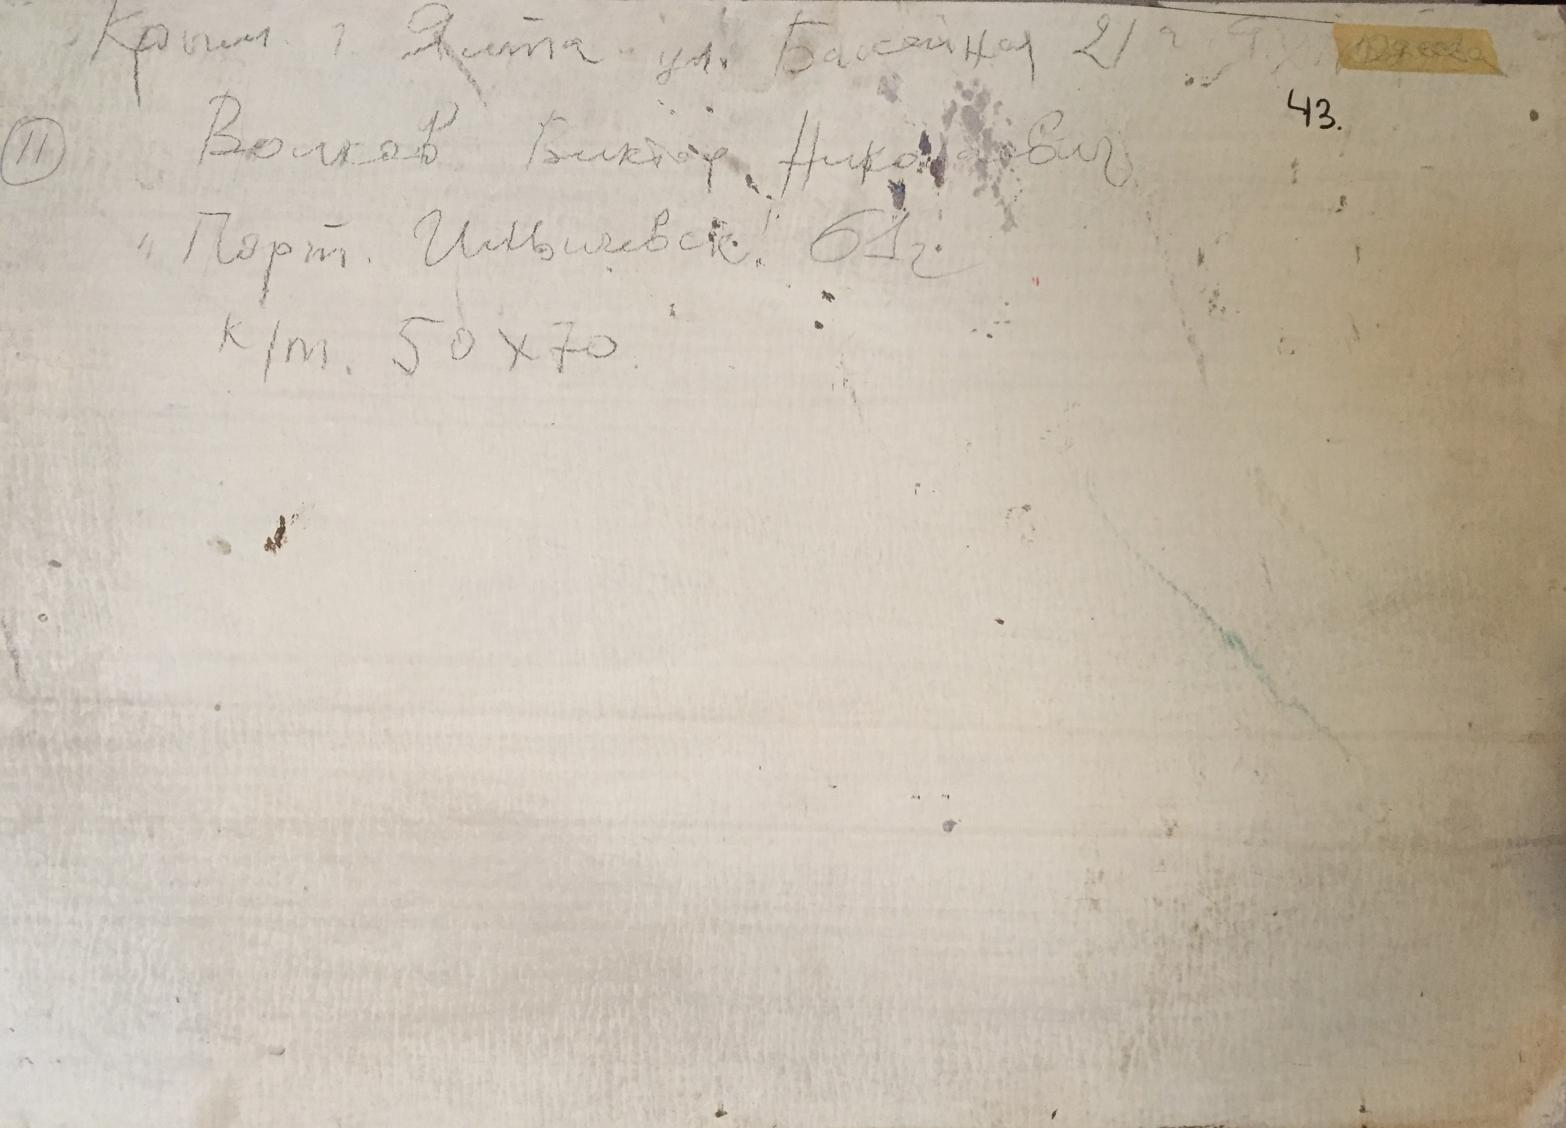 Крым г Ялта ул. Бассейная 21
Одесса
43.
11 Волков Виктор Николаевич
"Порт. Ильичевск" 61г
к/т. 50х70